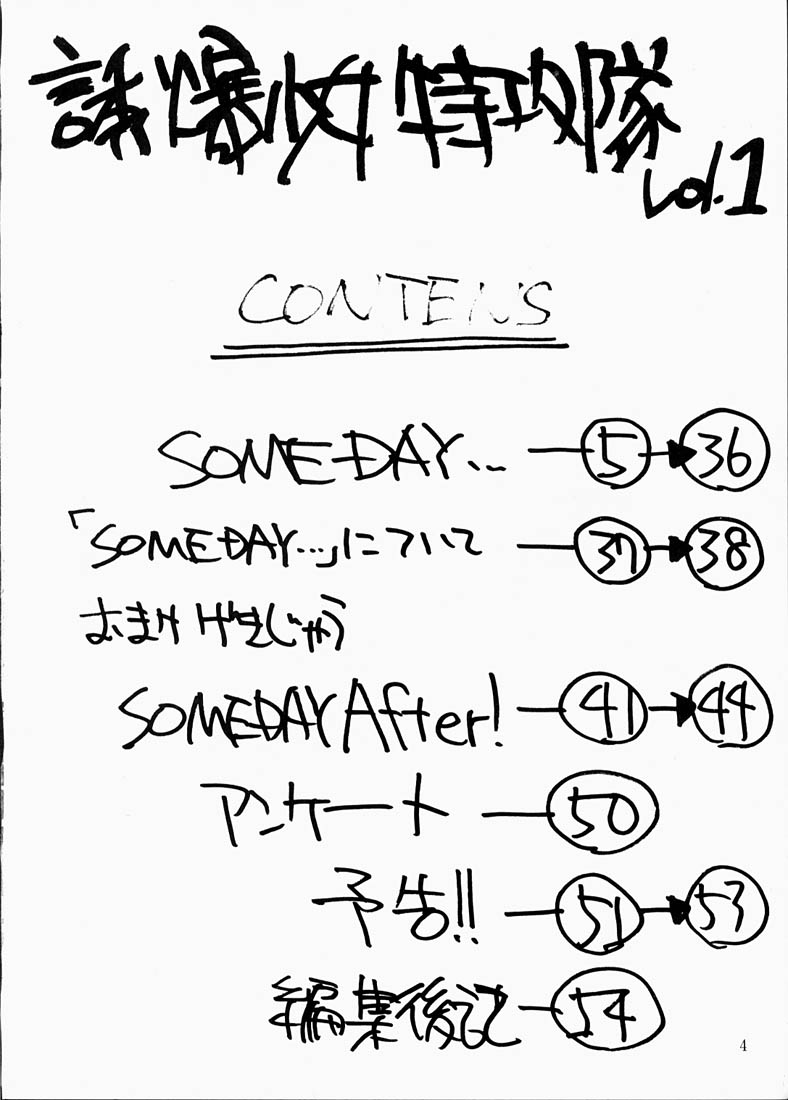 誘爆少女特攻隊
vol.1
CONTENS
SOMEDAY… — 5 → 36
「SOMEDAY…」について — 37 → 38
おまけ げきじゃう
SOMEDAY After! — 41 → 44
アンケート — 50
予告!! — 51 → 53
編集後記 — 54
4